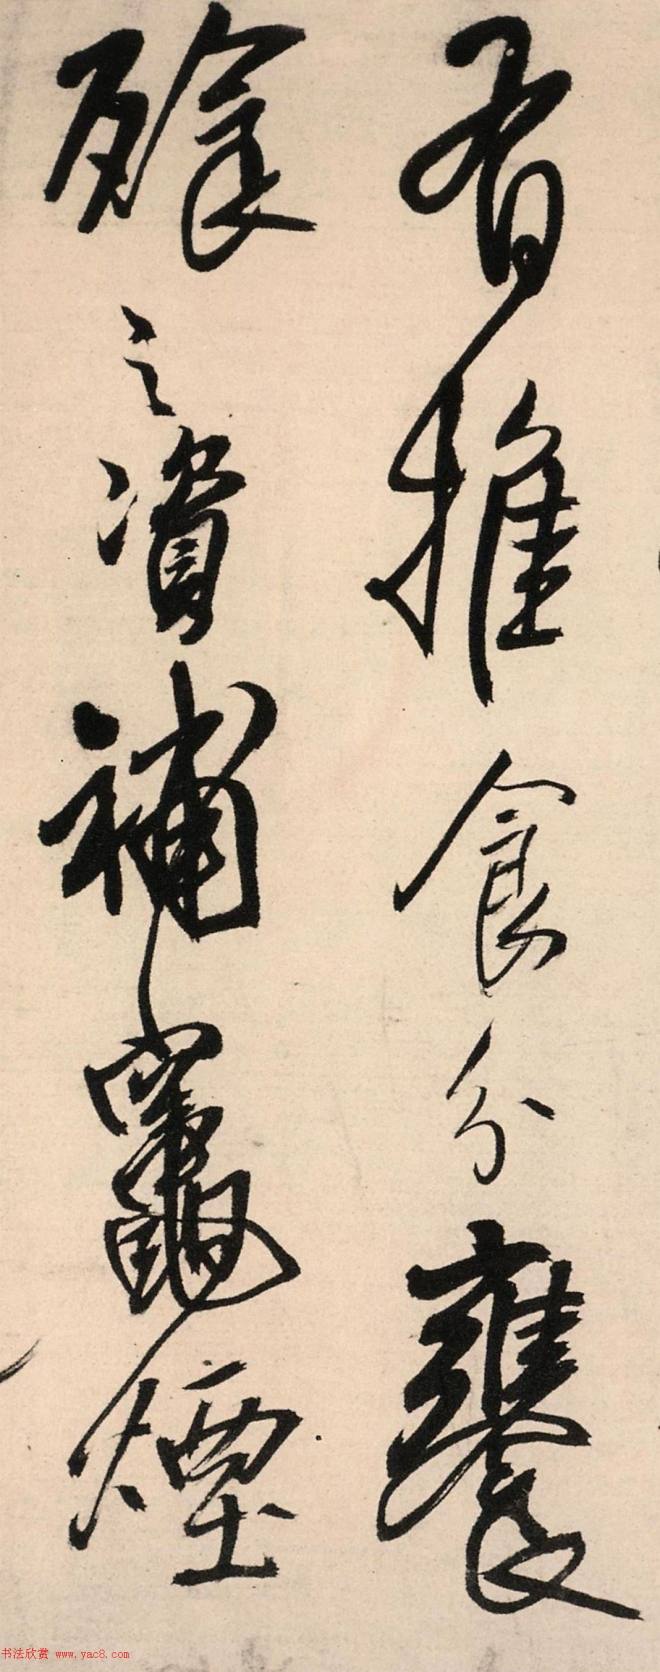 有推食分饔
飱之資補竈煙
书法欣赏 www.yac8.com